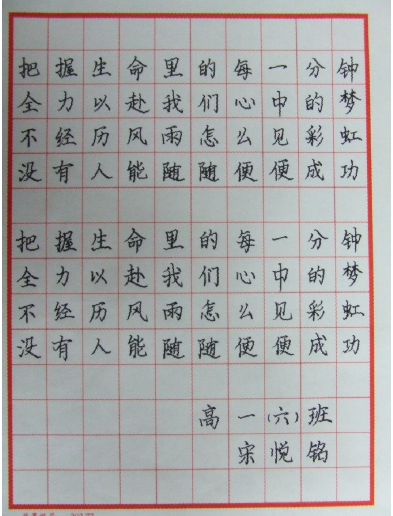 把握生命里的每一分钟
全力以赴我们心中的梦
不经历风雨怎么见彩虹
没有人能随随便便成功
把握生命里的每一分钟
全力以赴我们心中的梦
不经历风雨怎么见彩虹
没有人能随随便便成功
高一(六)班
宋悦铭